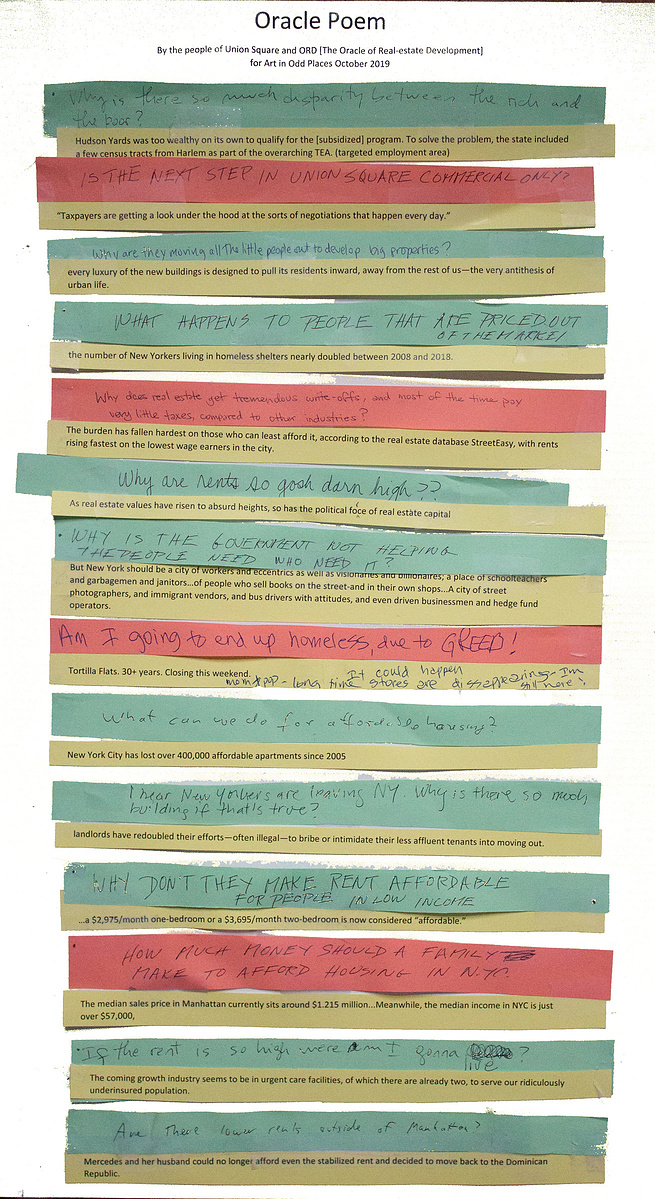 Oracle Poem
By the people of Union Square and ORD [The Oracle of Real-estate Development]
for Art in Odd Places October 2019
Why is there so much disparity between the rich and
the poor?
Hudson Yards was too wealthy on its own to qualify for the [subsidized] program. To solve the problem, the state included
a few census tracts from Harlem as part of the overarching TEA. (targeted employment area)
IS THE NEXT STEP IN UNION SQUARE COMMERCIAL ONLY?
"Taxpayers are getting a look under the hood at the sorts of negotiations that happen every day."
Why are they moving all The little people out to develop big properties?
every luxury of the new buildings is designed to pull its residents inward, away from the rest of us—the very antithesis of
urban life.
WHAT HAPPENS TO PEOPLE THAT ARE PRICED OUT
OF THE MARKET
the number of New Yorkers living in homeless shelters nearly doubled between 2008 and 2018.
Why does real estate get tremendous write-offs, and most of the time pay
very little taxes, compared to other industries?
The burden has fallen hardest on those who can least afford it, according to the real estate database StreetEasy, with rents
rising fastest on the lowest wage earners in the city.
Why are rents so gosh darn high??
As real estate values have risen to absurd heights, so has the political foce of real estate capital
WHY IS THE GOVERNMENT NOT HELPING
THE PEOPLE NEED WHO NEED IT?
But New York should be a city of workers and eccentrics as well as visionaries and billionaires; a place of schoolteachers
and garbagemen and janitors...of people who sell books on the street-and in their own shops...A city of street
photographers, and immigrant vendors, and bus drivers with attitudes, and even driven businessmen and hedge fund
operators.
Am I going to end up homeless, due to GREED!
Tortilla Flats. 30+ years. Closing this weekend.
It could happen
mom & pop - long time stores are dissappearing - I'm
still here!
What can we do for affordable housing?
New York City has lost over 400,000 affordable apartments since 2005
I hear New Yorkers are leaving NY. Why is there so much
building if that's true?
landlords have redoubled their efforts—often illegal—to bribe or intimidate their less affluent tenants into moving out.
WHY DON'T THEY MAKE RENT AFFORDABLE
FOR PEOPLE IN LOW INCOME
...a $2,975/month one-bedroom or a $3,695/month two-bedroom is now considered "affordable."
HOW MUCH MONEY SHOULD A FAMILY
MAKE TO AFFORD HOUSING IN N.Y.C?
The median sales price in Manhattan currently sits around $1.215 million...Meanwhile, the median income in NYC is just
over $57,000,
If the rent is so high were am I gonna live?
The coming growth industry seems to be in urgent care facilities, of which there are already two, to serve our ridiculously
underinsured population.
Are There lower rents outside of Manhattan?
Mercedes and her husband could no longer afford even the stabilized rent and decided to move back to the Dominican
Republic.